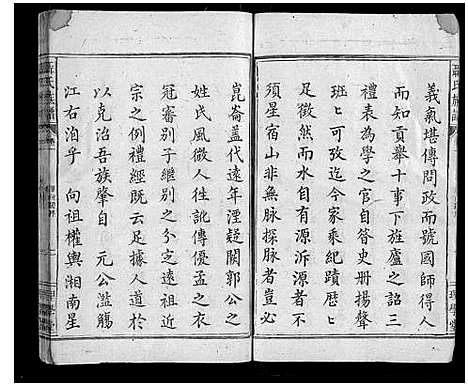 義氣堪傳問政而號國師得人
而知貢舉十事下旌廬之詔三
禮表為學之官自答史冊揚聲
班ヒ可攷迄今家乘紀蹟歷ヒ
足徵而水自有源泝源者不
須星宿山非無脉探脉者豈必
崑崙盖代遠年湮疑闕郭公之
姓氏風微人徃訛傳優孟之衣
冠審别子繼别之分定遠祖近
宗之例禮經既云足據人道於
以克治吾族肇自 元公濫觴
江右泊乎 向祖權輿湘南星